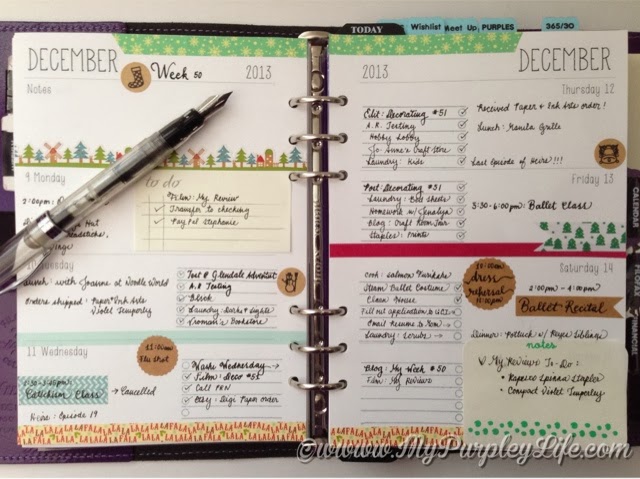 TODAY
Wishlist
Meet Up
PURPLES
365/30
DECEMBER
Week 50
2013
Notes
9 Monday
2:00pm:
Hut
to do
Film: My Review
Transfer to checking
PayPal Stephanie
10 Tuesday
Lunch: with Joanne at Noodle World
Orders shipped: Paper & Ink Arts
Violet Temporley
Test @ Glendale Adventist
A.R. Testing
Block
Laundry: Darks & Lights
Vroman's Bookstore
11 Wednesday
11:00am
Flu shot
Catechism Class
→ Cancelled
Heirs: Episode 19
Washi Wednesday →
Film: Deco #55
Call PRN
Etsy: Digi Paper order
2013
DECEMBER
Thursday 12
Edit: Decorating #51
A.R. Testing
Hobby Lobby
Jo-Anne's Craft Store
Laundry: Kids
Received Paper & Ink Arts order!
Lunch: Manila Grille
Last Episode of Heirs!!!
Friday 13
Post: Decorating #51
Laundry: Bed sheets
Homework w/
Blog: Craft Room Tour
Staples: Prints
3:30-6:00pm: Ballet Class
Saturday 14
Cook: Salmon
Steam Ballet Costume
Clean House
Fill out application to
Email Resume to Mom
Laundry: Scrubs →
dress
rehearsal
2:00pm - 4:00pm
Ballet Recital
Dinner: Potluck w/ Reyes Siblings
notes
Blog: My Week 50
Film: My Reviews
My Reviews To-Do:
• Kapeico Spinna Stapler
• Compact Violet Temporley
CALENDAR
©www.MyPurpleyLife.com